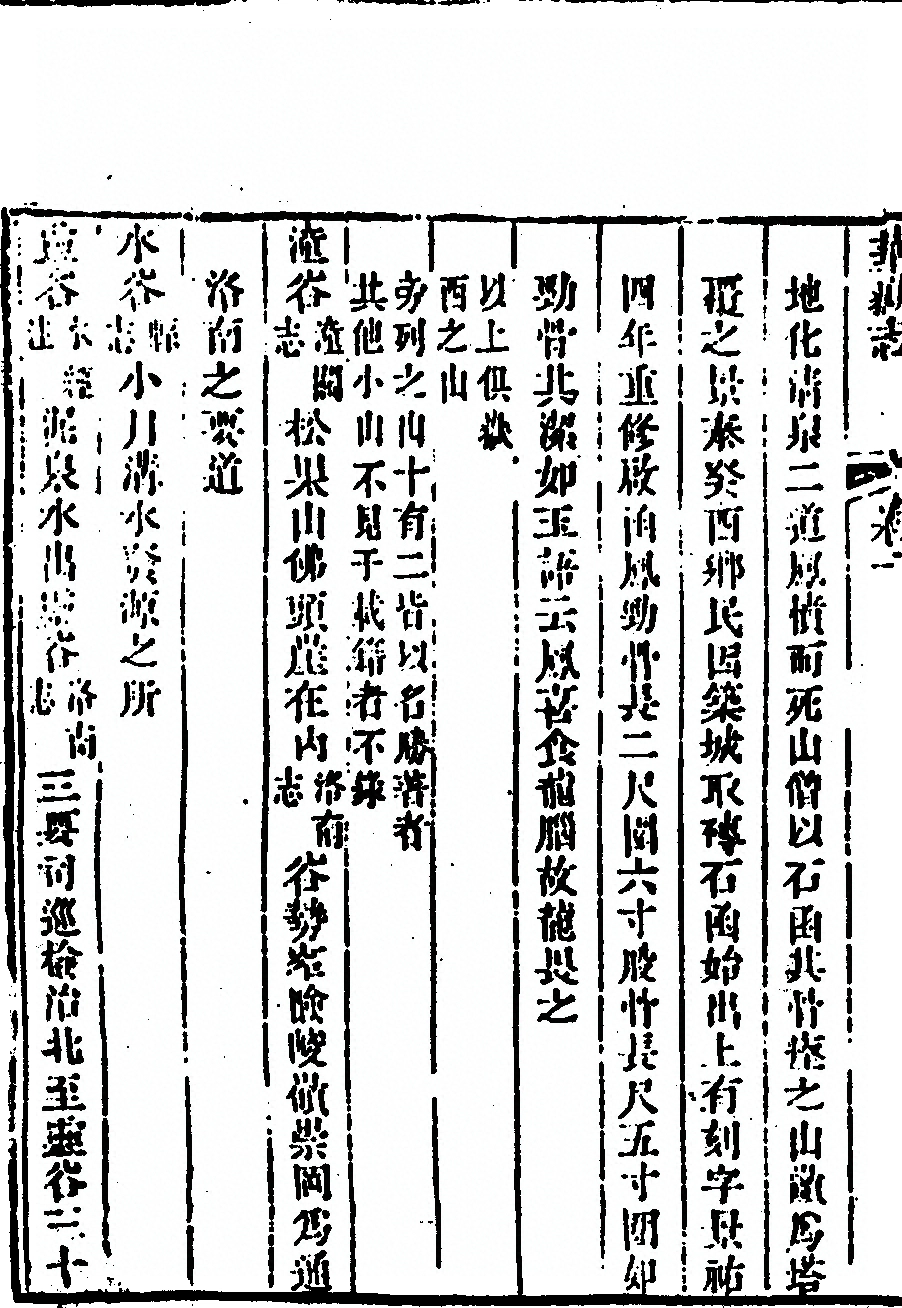 地化清泉二道鳳憤而死山僧以石函其骨瘞之山巔爲塔
瘞之景泰癸酉鄉民因築城取磚石函始出上有刻字景祐
四年重修啟函鳳勁骨長二尺圍六寸股骨長尺五寸圍如
勁骨共潔如玉語云鳳喜食龍腦故龍畏之
以上俱嶽
西之山
旁列之山十有二皆以名勝著者
其他小山不見于載籍者不錄
潼谷潼關志松果山佛頭崖在內洛南志谷勢窄險陵㟢崇岡爲通
洛南之要道
水谷縣志小月溝水發源之所
靈谷水經注泥泉水出靈谷洛南志三要司巡檢治北至靈谷二十